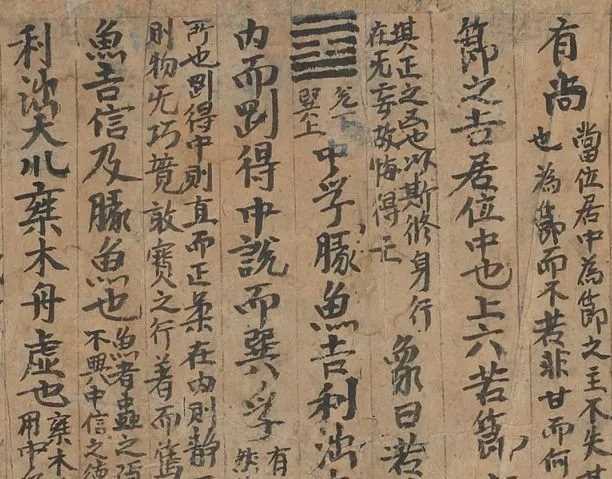 有尚
當位居中為節之主不失其
也為節而不苦非甘而何
節之吉居位中也上六苦節
堪正之凶也以斯脩身行
在无妄故悔得亡
象曰苦
兌下
巽上
中孚豚魚吉利涉
内而剛得中說而巽孚
有
然
所也剛得中則直而正柔在内則靜
則物无巧競敦實之行著而篤
魚吉信及豚魚也
魚者蟲之
不興中信之德
利涉大川乘木舟虛也
乘木
用中